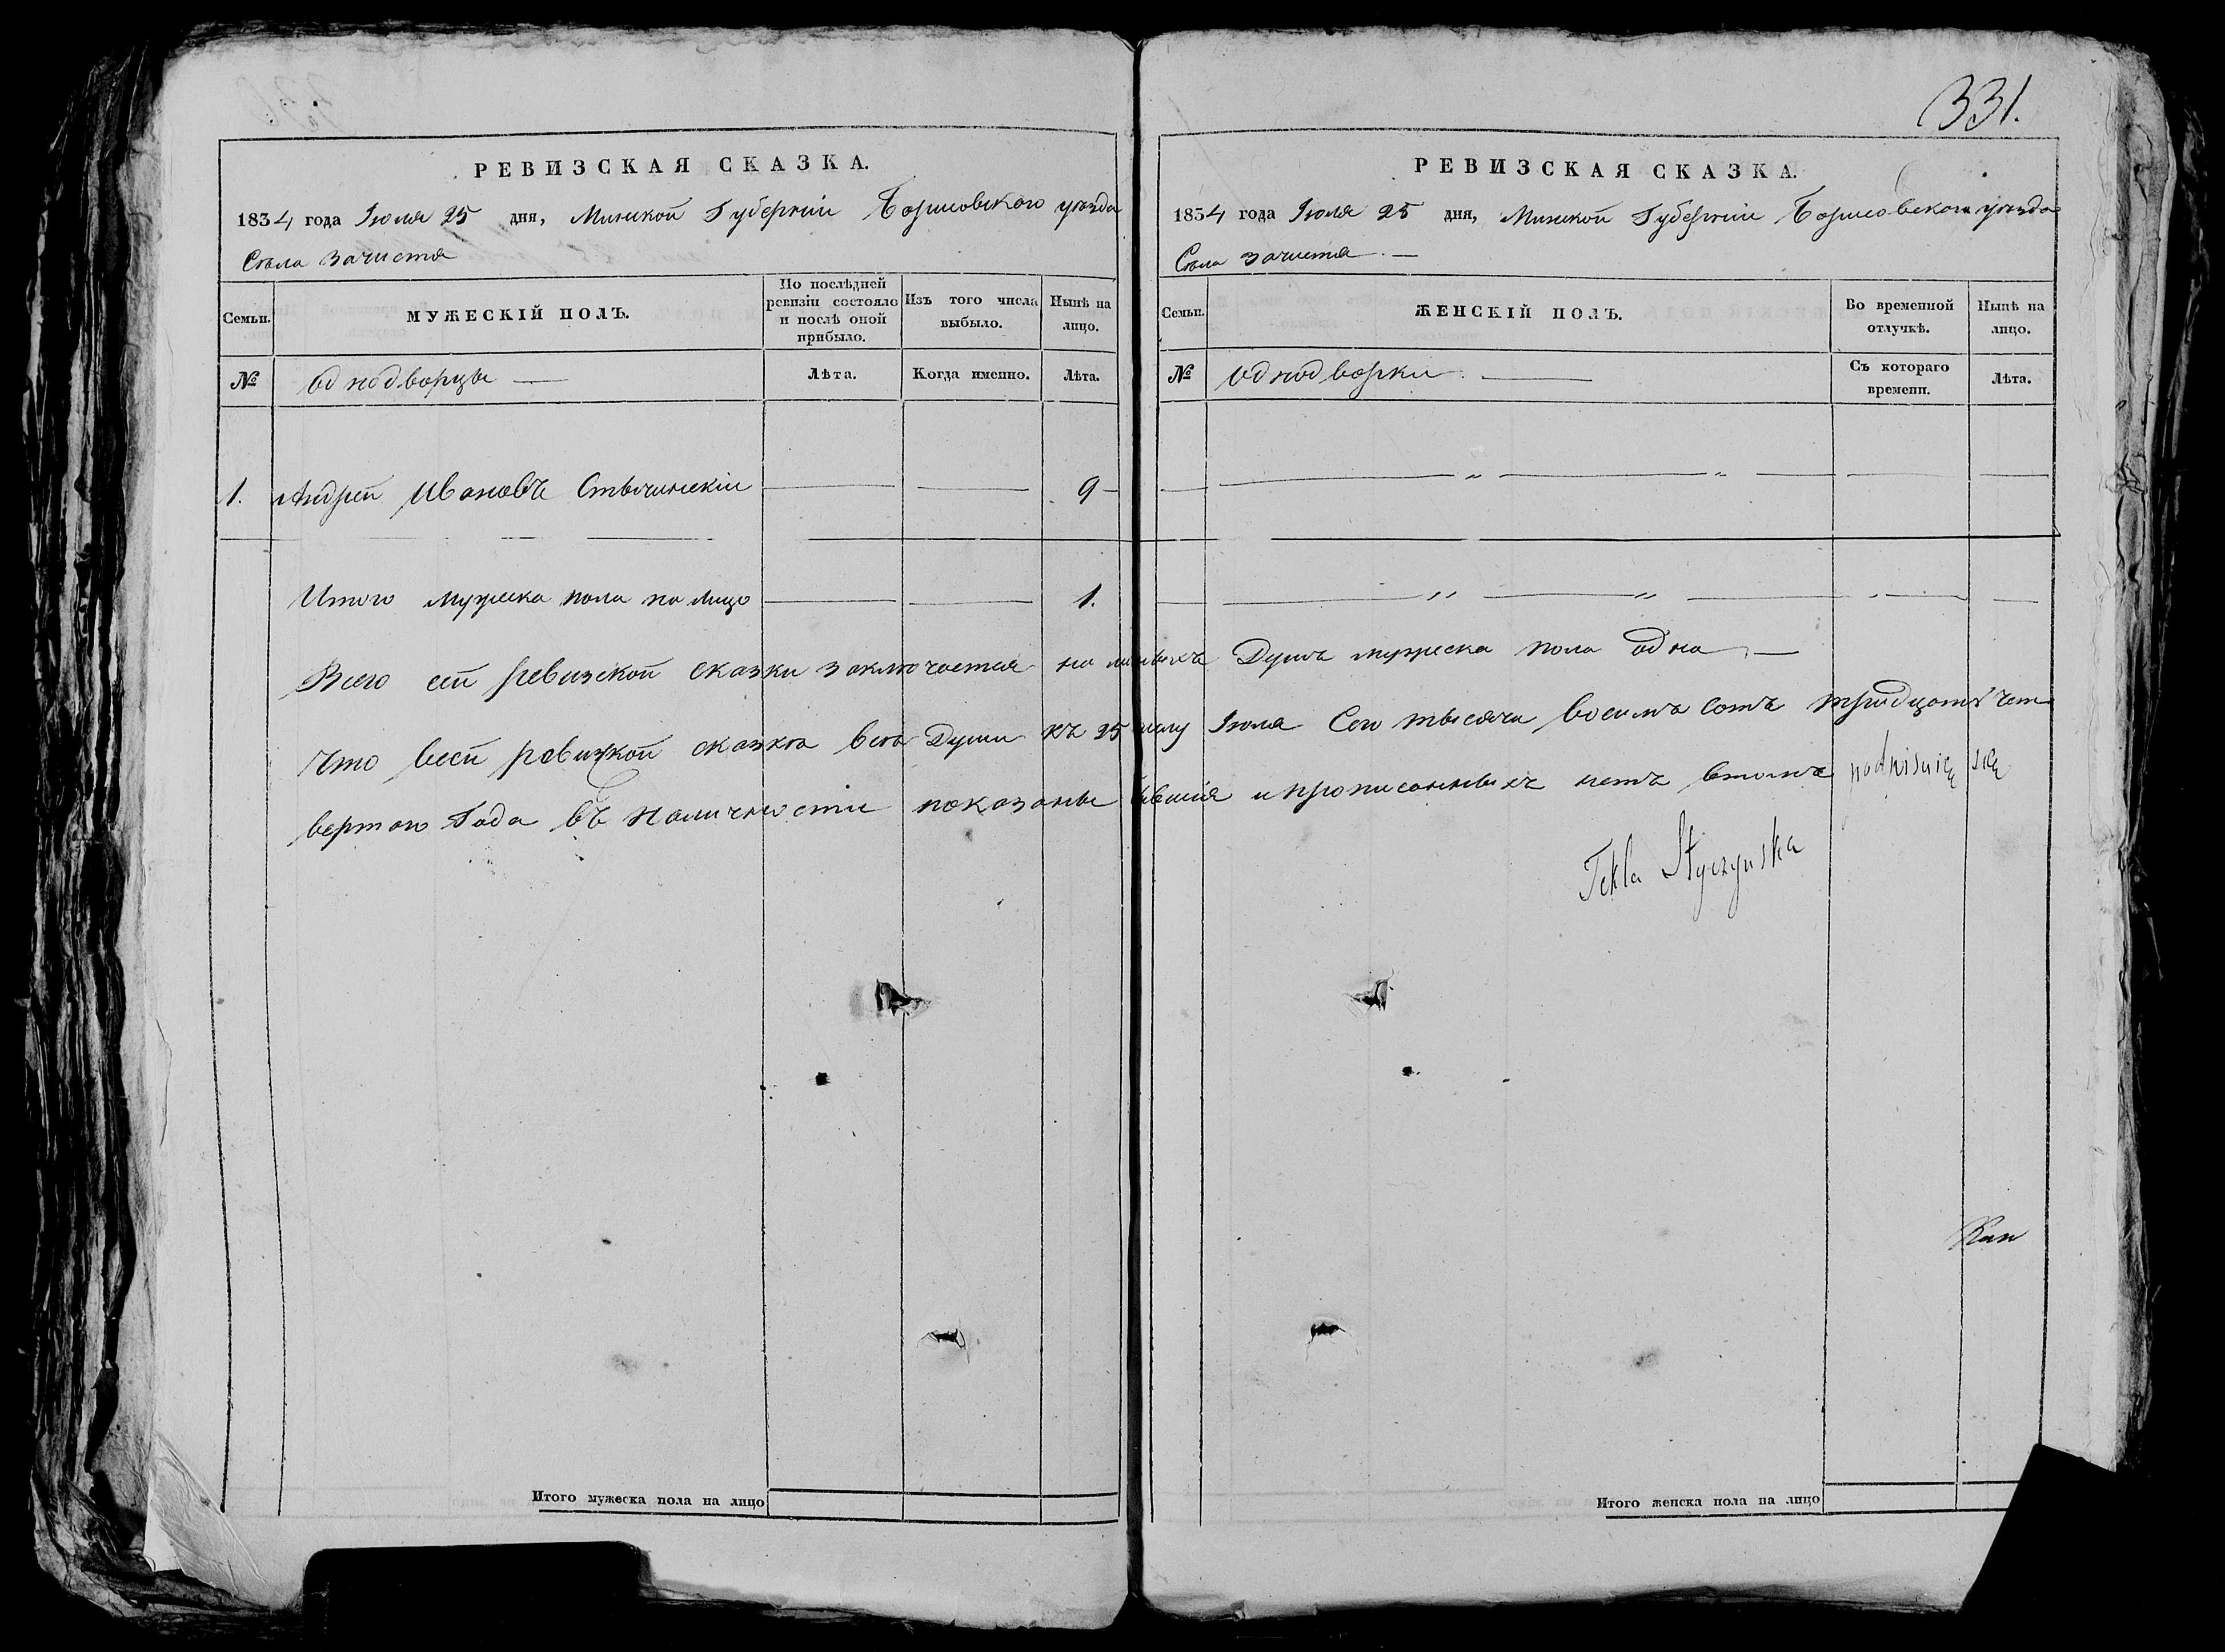 331.
РЕВИЗСКАЯ СКАЗКА.
1834 года Июля 25 дня, Минской Губернии Борисовского уезда
Села Зачистя
Семьи.
МУЖЕСКІЙ ПОЛЪ.
По послѣдней ревизіи состояло и послѣ оной прибыло.
Изъ того числа выбыло.
Нынѣ на лицо.
№
Однодворцы —
Лѣта.
Когда именно.
Лѣта.
1. Андрей Ивановъ Стычинскіи — — 9
Итого мужеска пола на лицо — — 1.
РЕВИЗСКАЯ СКАЗКА.
1834 года Июля 25 дня, Минской Губернии Борисовского уезда
Села Зачистя. —
Семьи.
ЖЕНСКІЙ ПОЛЪ.
Во временной отлучкѣ.
Нынѣ на лицо.
№
Однодворки. —
Съ котораго времени.
Лѣта.
Всего сей ревизской сказки заключается наличныхъ Душъ мужеска пола одна —
Что всей ревизкой сказка все Души къ 25 числу Июля Сего тысячи восимъ сотъ тридцать чет
вертого Года въ Наличности показаны и прописанныхъ нетъ втомъ podpisuię się
Tekla Styczynska
Кан
Итого мужеска пола на лицо
Итого женска пола на лицо